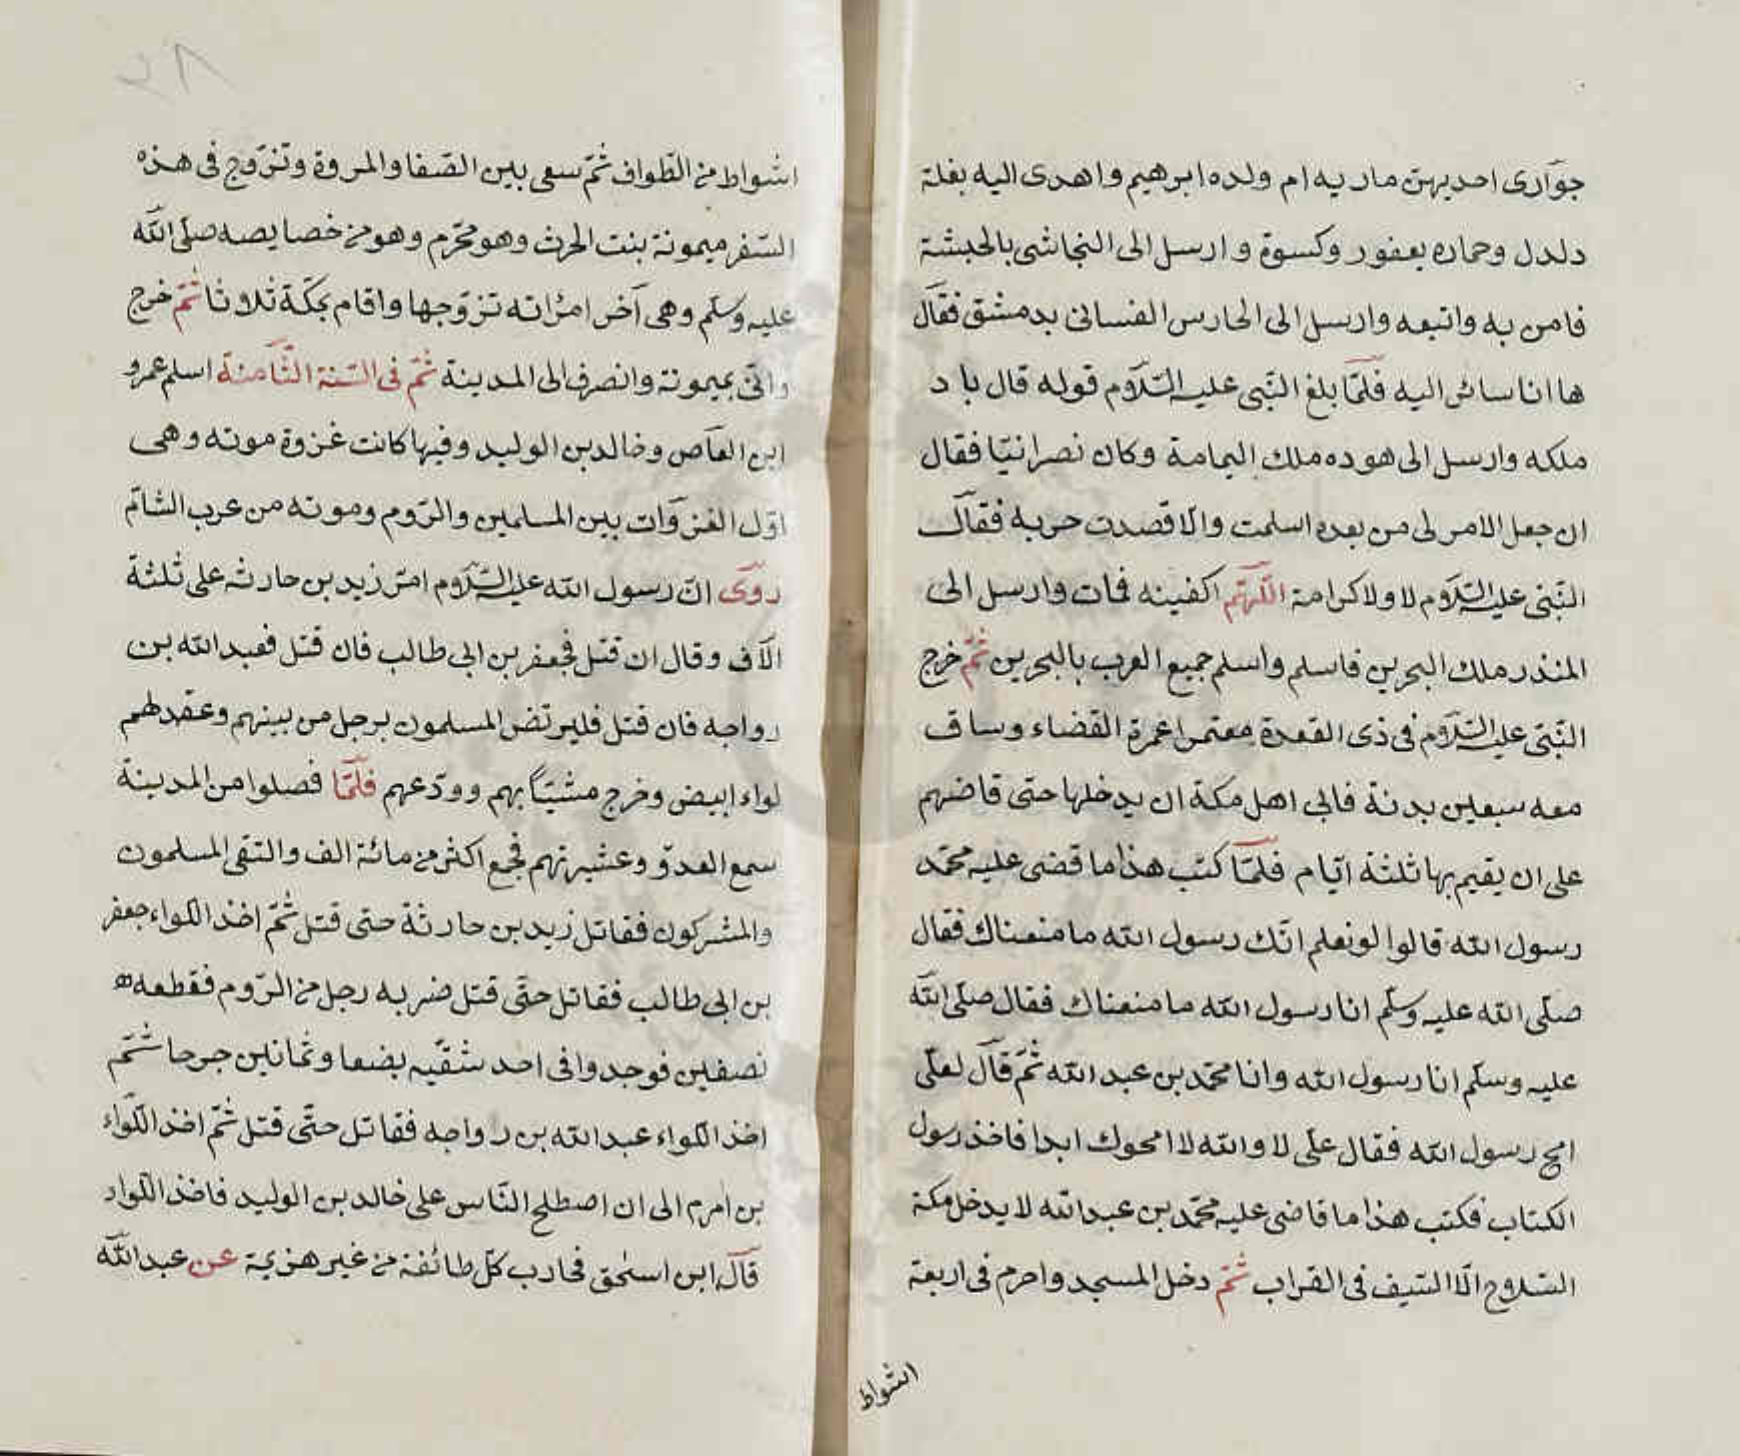 جوارى احديهن ماريه ام ولده ابرهيم واهدى اليه بغلة
دلدل وحماره يعفور وكسوة وارسل الى النجاشى بالحبشة
فامن به واتبعه وارسل الى الحارس الغسانى بدمشق فقال
ها انا سائر اليه فلمّا بلغ النّبى عليه السّلام قوله قال باد
ملكه وارسل الى هوده ملك اليمامة وكان نصرانيّا فقال
ان جعل الامر لى من بعده اسلمت والّا قصدت حربه فقال
النّبى عليه السّلام لا ولا كرامة اللّهمّ اكفينه فمات وارسل الى
المنذر ملك البحرين فاسلم واسلم جميع العرب بالبحرين ثمّ خرج
النّبىّ عليه السّلام فى ذى القعدة معتمرا عمرة القضاء وساق
معه سبعين بدنة فابى اهل مكة ان يدخلها حتى قاضهم
على ان يقيم بها ثلثة ايّام فلمّا كتب هذا ما قضى عليه محمّد
رسول الله قالوا لو نعلم انّك رسول الله ما منعناك فقال
صلّى الله عليه وسلّم انا رسول الله ما منعناك فقال صلّى الله
عليه وسلّم انا رسول الله وانا محمّد بن عبد الله ثمّ قال لعلّى
امح رسول الله فقال علّى لا والله لا امحوك ابدا فاخذ رسول
الكتاب فكتب هذا ما قاضى عليه محمّد بن عبد الله لا يدخل مكة
السّلاح الّا السّيف فى القراب ثمّ دخل المسجد واحرم فى اربعة
اشواط
٨٤
اشواط من الطّواف ثمّ سعى بين الصّفا والمروة وتزوّج فى هذه
السّفر ميمونة بنت الحرث وهو محرم وهو من خصايصه صلّى الله
عليه وسلّم وهى آخر امرٔاته تزوّجها واقام بمكّة ثلاثا ثمّ خرج
واتى بميمونة وانصرف الى المدينة ثمّ فى السّنة الثّامنة اسلم عمرو
ابن العاص وخالد بن الوليد وفيها كانت غزوة موته وهى
اوّل الغزوات بين المسلمين والرّوم وموته من عرب الشام
روى انّ رسول الله عليه السّلام امّر زيد بن حارثه على ثلثة
الآف وقال ان قتل فجعفر بن ابى طالب فان قتل فعبد الله بن
رواجه فان قتل فليرتض المسلمون برجل من بينهم وعقد لهم
لواء ابيض وخرج مشيّئا بهم وودّعهم فلمّا فصلوا من المدينة
سمع العدوّ وعشيرتهم فجمع اكثر من مائة الف والتقى المسلمون
والمشركون فقاتل زيد بن حارثة حتى قتل ثمّ اخذ اللواء جعفر
بن ابى طالب فقاتل حتّى قتل ضربه رجل من الرّوم فقطعه
نصفين فوجدوا فى احد شقّيه بضعا وثمانين جرحا ثمّ
اخذ اللواء عبد الله بن رواجه فقاتل حتّى قتل ثمّ اخذ اللواء
بن امرم الى ان اصطلح النّاس على خالد بن الوليد فاخذ اللواء
قال ابن اسحٰق فحارب كلّ طائفة من غير هزيمة عن عبد الله